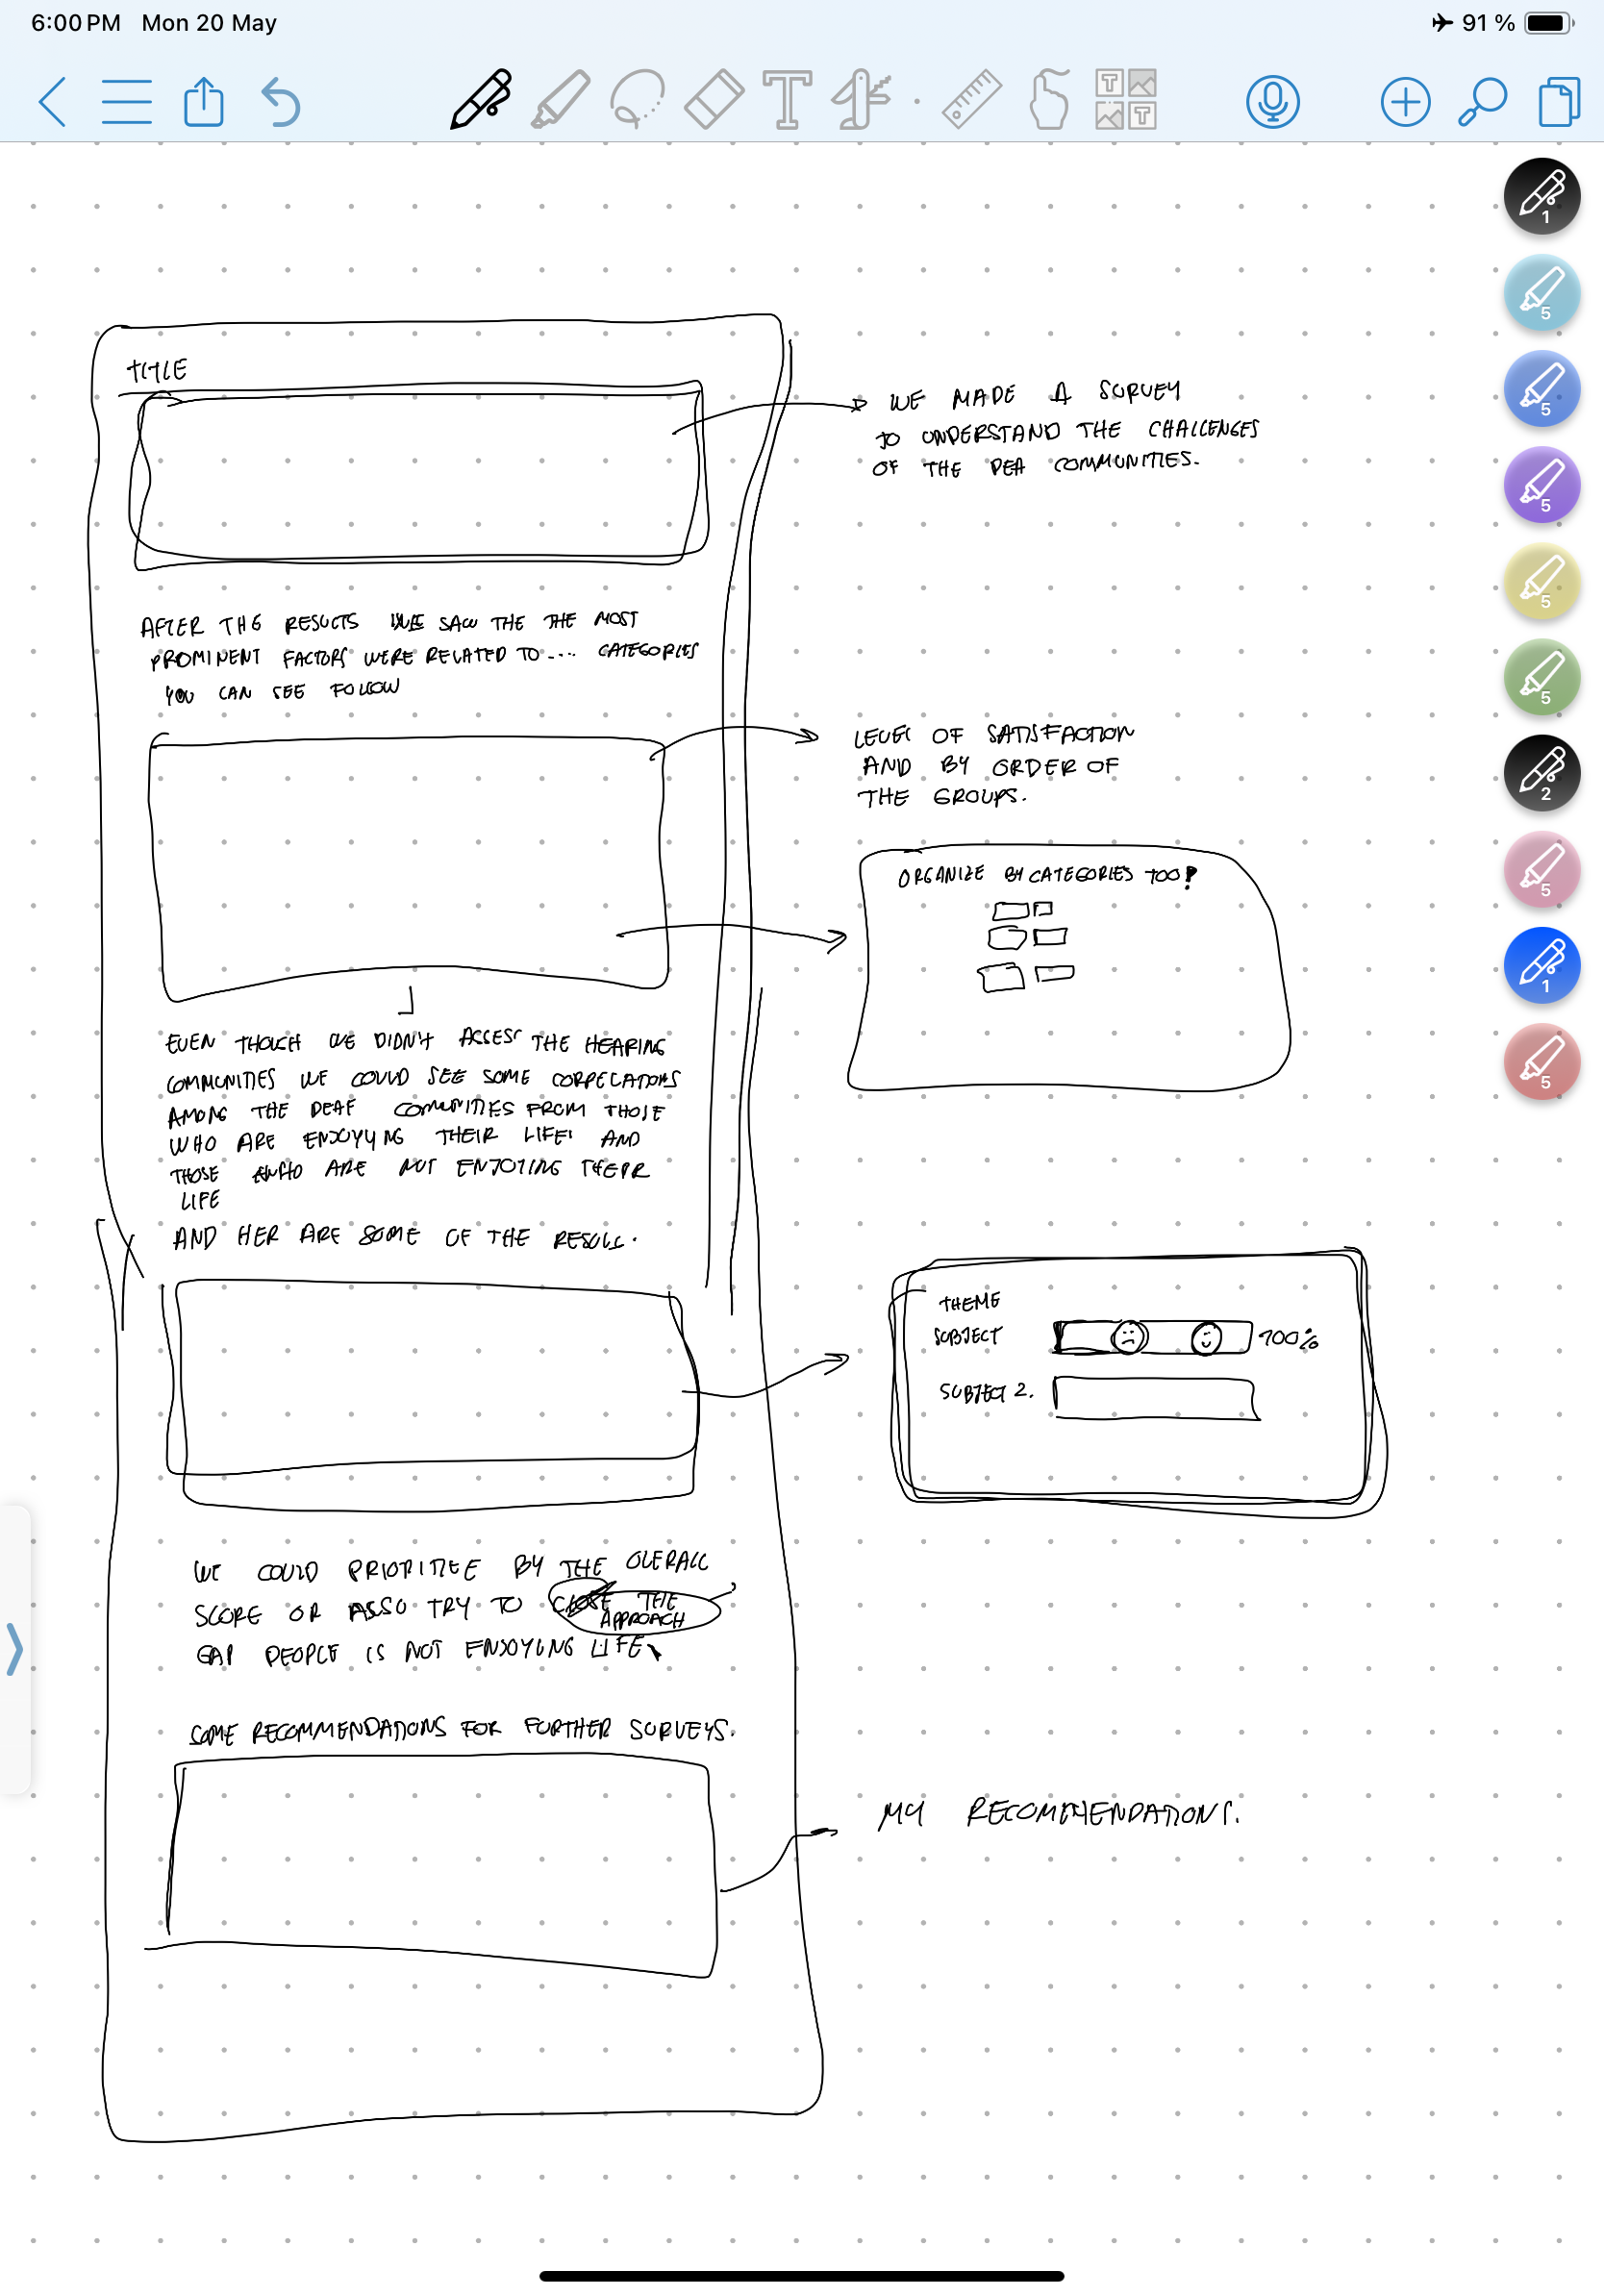 6:00 PM Mon 20 May
91 %
TITLE
WE MADE A SURVEY
TO UNDERSTAND THE CHALLENGES
OF THE DEA COMMUNITIES.
AFTER THE RESULTS WE SAW THE THE MOST
PROMINENT FACTORS WERE RELATED TO .... CATEGORIES
YOU CAN SEE FOLLOW
LEVEL OF SATISFACTION
AND BY ORDER OF
THE GROUPS.
ORGANIZE BY CATEGORIES TOO!
EVEN THOUGH WE DIDN'T ACCESS THE HEARING
COMMUNITIES WE COULD SEE SOME CORRELATIONS
AMONG THE DEAF COMUNITIES FROM THOSE
WHO ARE ENJOYYING THEIR LIFE AND
THOSE WHO ARE NOT ENJOYING THEIR
LIFE
AND HER ARE SOME OF THE RESULL.
THEME
SUBJECT 100%
SUBJECT 2.
WE COULD PRIORITIZE BY THE OVERALL
SCORE OR ALSO TRY TO CLOSE THE
APPROACH
GAP PEOPLE IS NOT ENJOYING LIFE
SOME RECOMMENDATIONS FOR FURTHER SURVEYS.
MY RECOMMENDATIONS.
1
5
5
5
5
5
2
5
1
5